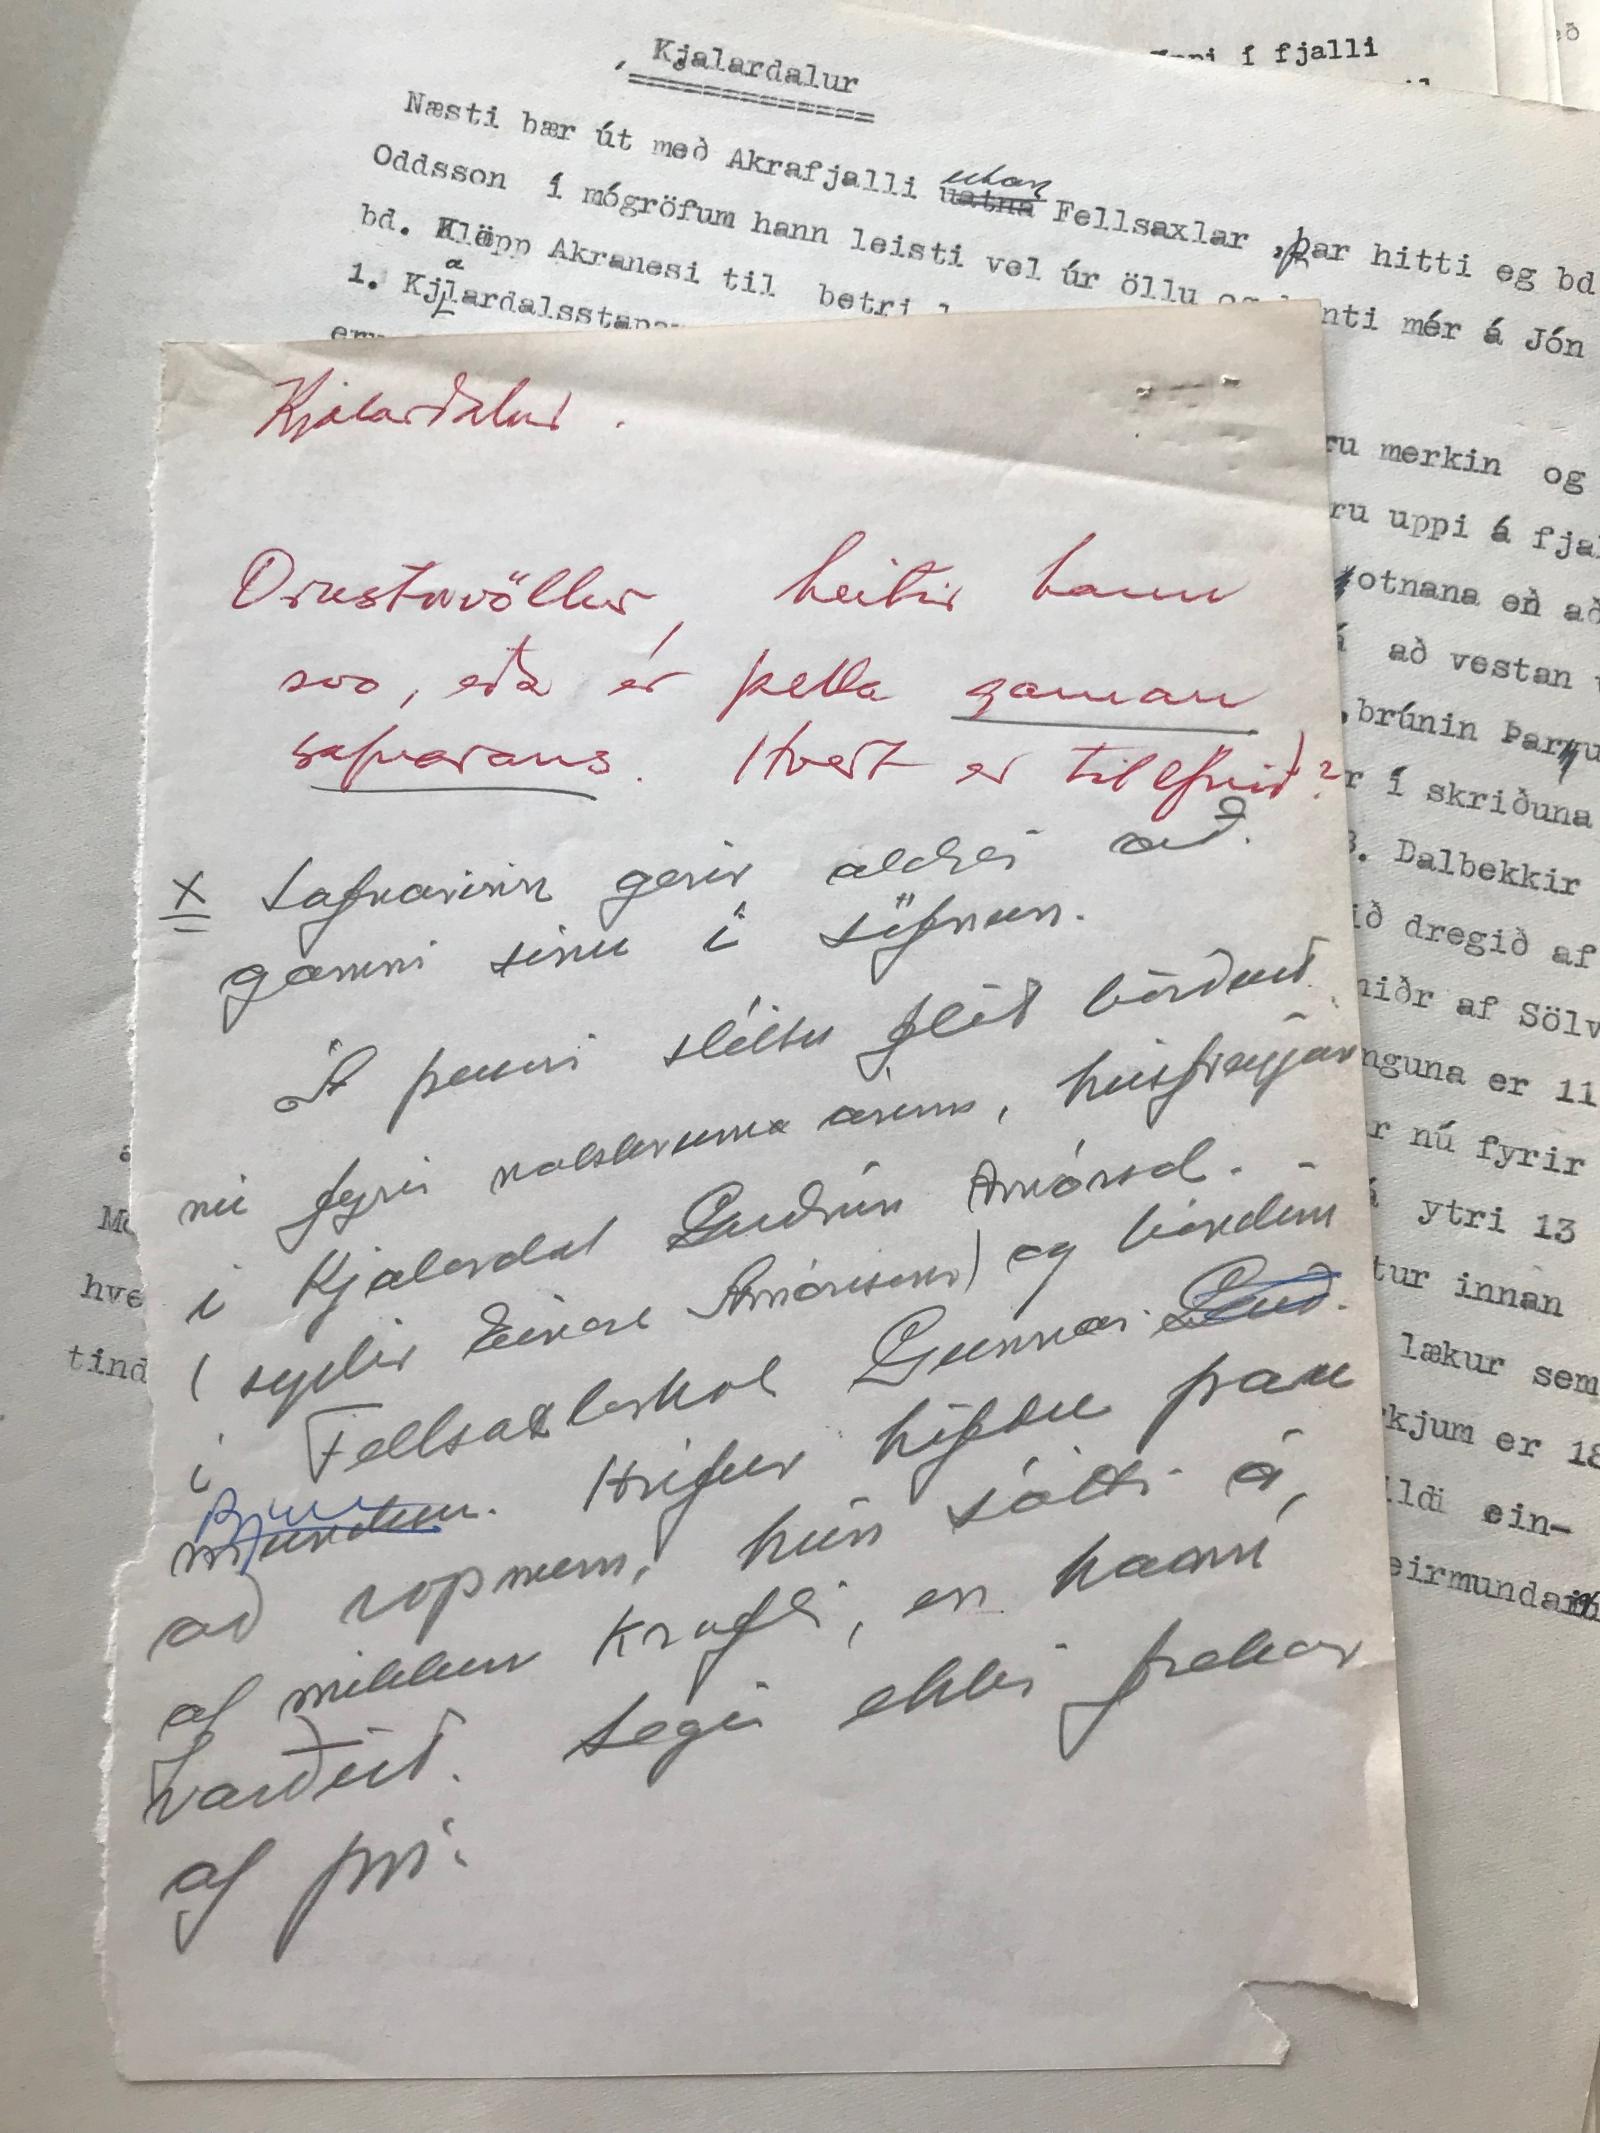 Kjalardalur
Næsti bær út með Akrafjalli utan Fellsaxlar, þar hitti eg bd
Oddsson í mógröfum hann leisti vel úr öllu og benti mér á Jón
bd. Klöpp Akranesi til betri
1. Kjalardalsstapar
í fjalli
ru merkin og
ru uppi á fjal
otnana en að
á að vestan
brúnin Þar
r í skriðuna
3. Dalbekkir
ið dregið af
niðr af Sölv
nguna er 11
r nú fyrir
á ytri 13
tur innan
lækur sem
rkjum er 18
ldi ein-
eirmundar
Mó
hve
tind
Kjalardalur.
Orustuvöllur, heitir hann
svo, eða er þetta gaman
safnarans. Hvert er tilefnið?
x Safnarinn gerir aldrei að
gamni sínu í söfnun.
Á þenni sléttu flöt börðust
nú fyrir nokkrum árum, húsfreyjan
í Kjalardal Guðrún Arnórsd.
(systir Einars Arnórssonar) og bóndinn
í Fellsaxlarkot Gunnar Guð.
mundur. Bj Hrífur höfðu þau
að vopnum, hún sótti á,
af miklum krafti, en hann
varðist. Segir ekki frekar
af því.